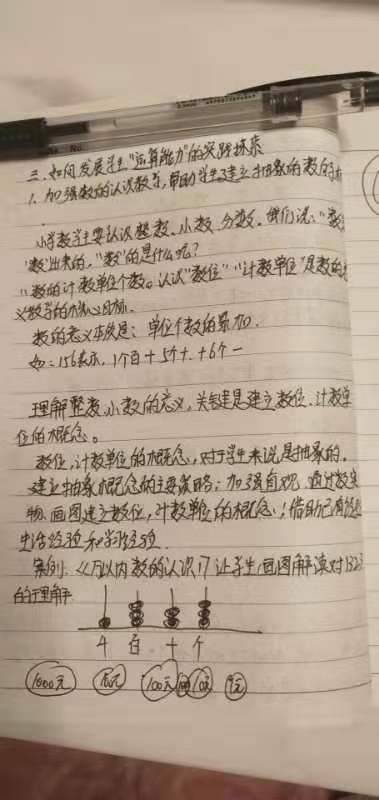 三、如何发展学生"运算能力"的实践探索
1、加强数的认识教学,帮助学生建立抽象的数的
小学数学主要认识整数、小数、分数。我们说:"数
'数'出来的,"数"的是什么呢?
"数的计数单位个数。认识"数位""计数单位"是数的
义教学的核心目标.
数的意义本质是:单位个数的累加.
如:156表示,1个百+5个十+6个一
理解整数、小数的意义,关键是建立数位、计数单
位的概念。
数位,计数单位的概念,对于学生来说是抽象的.
建立抽象概念的主要策略:加强直观,通过数实
物、画图建立数位,计数单位的概念;借助已有
生活经验和学习经验.
案例:《万以内数的认识》让学生画图解读对
的理解
千 百 十 个
1000元 100元 10元